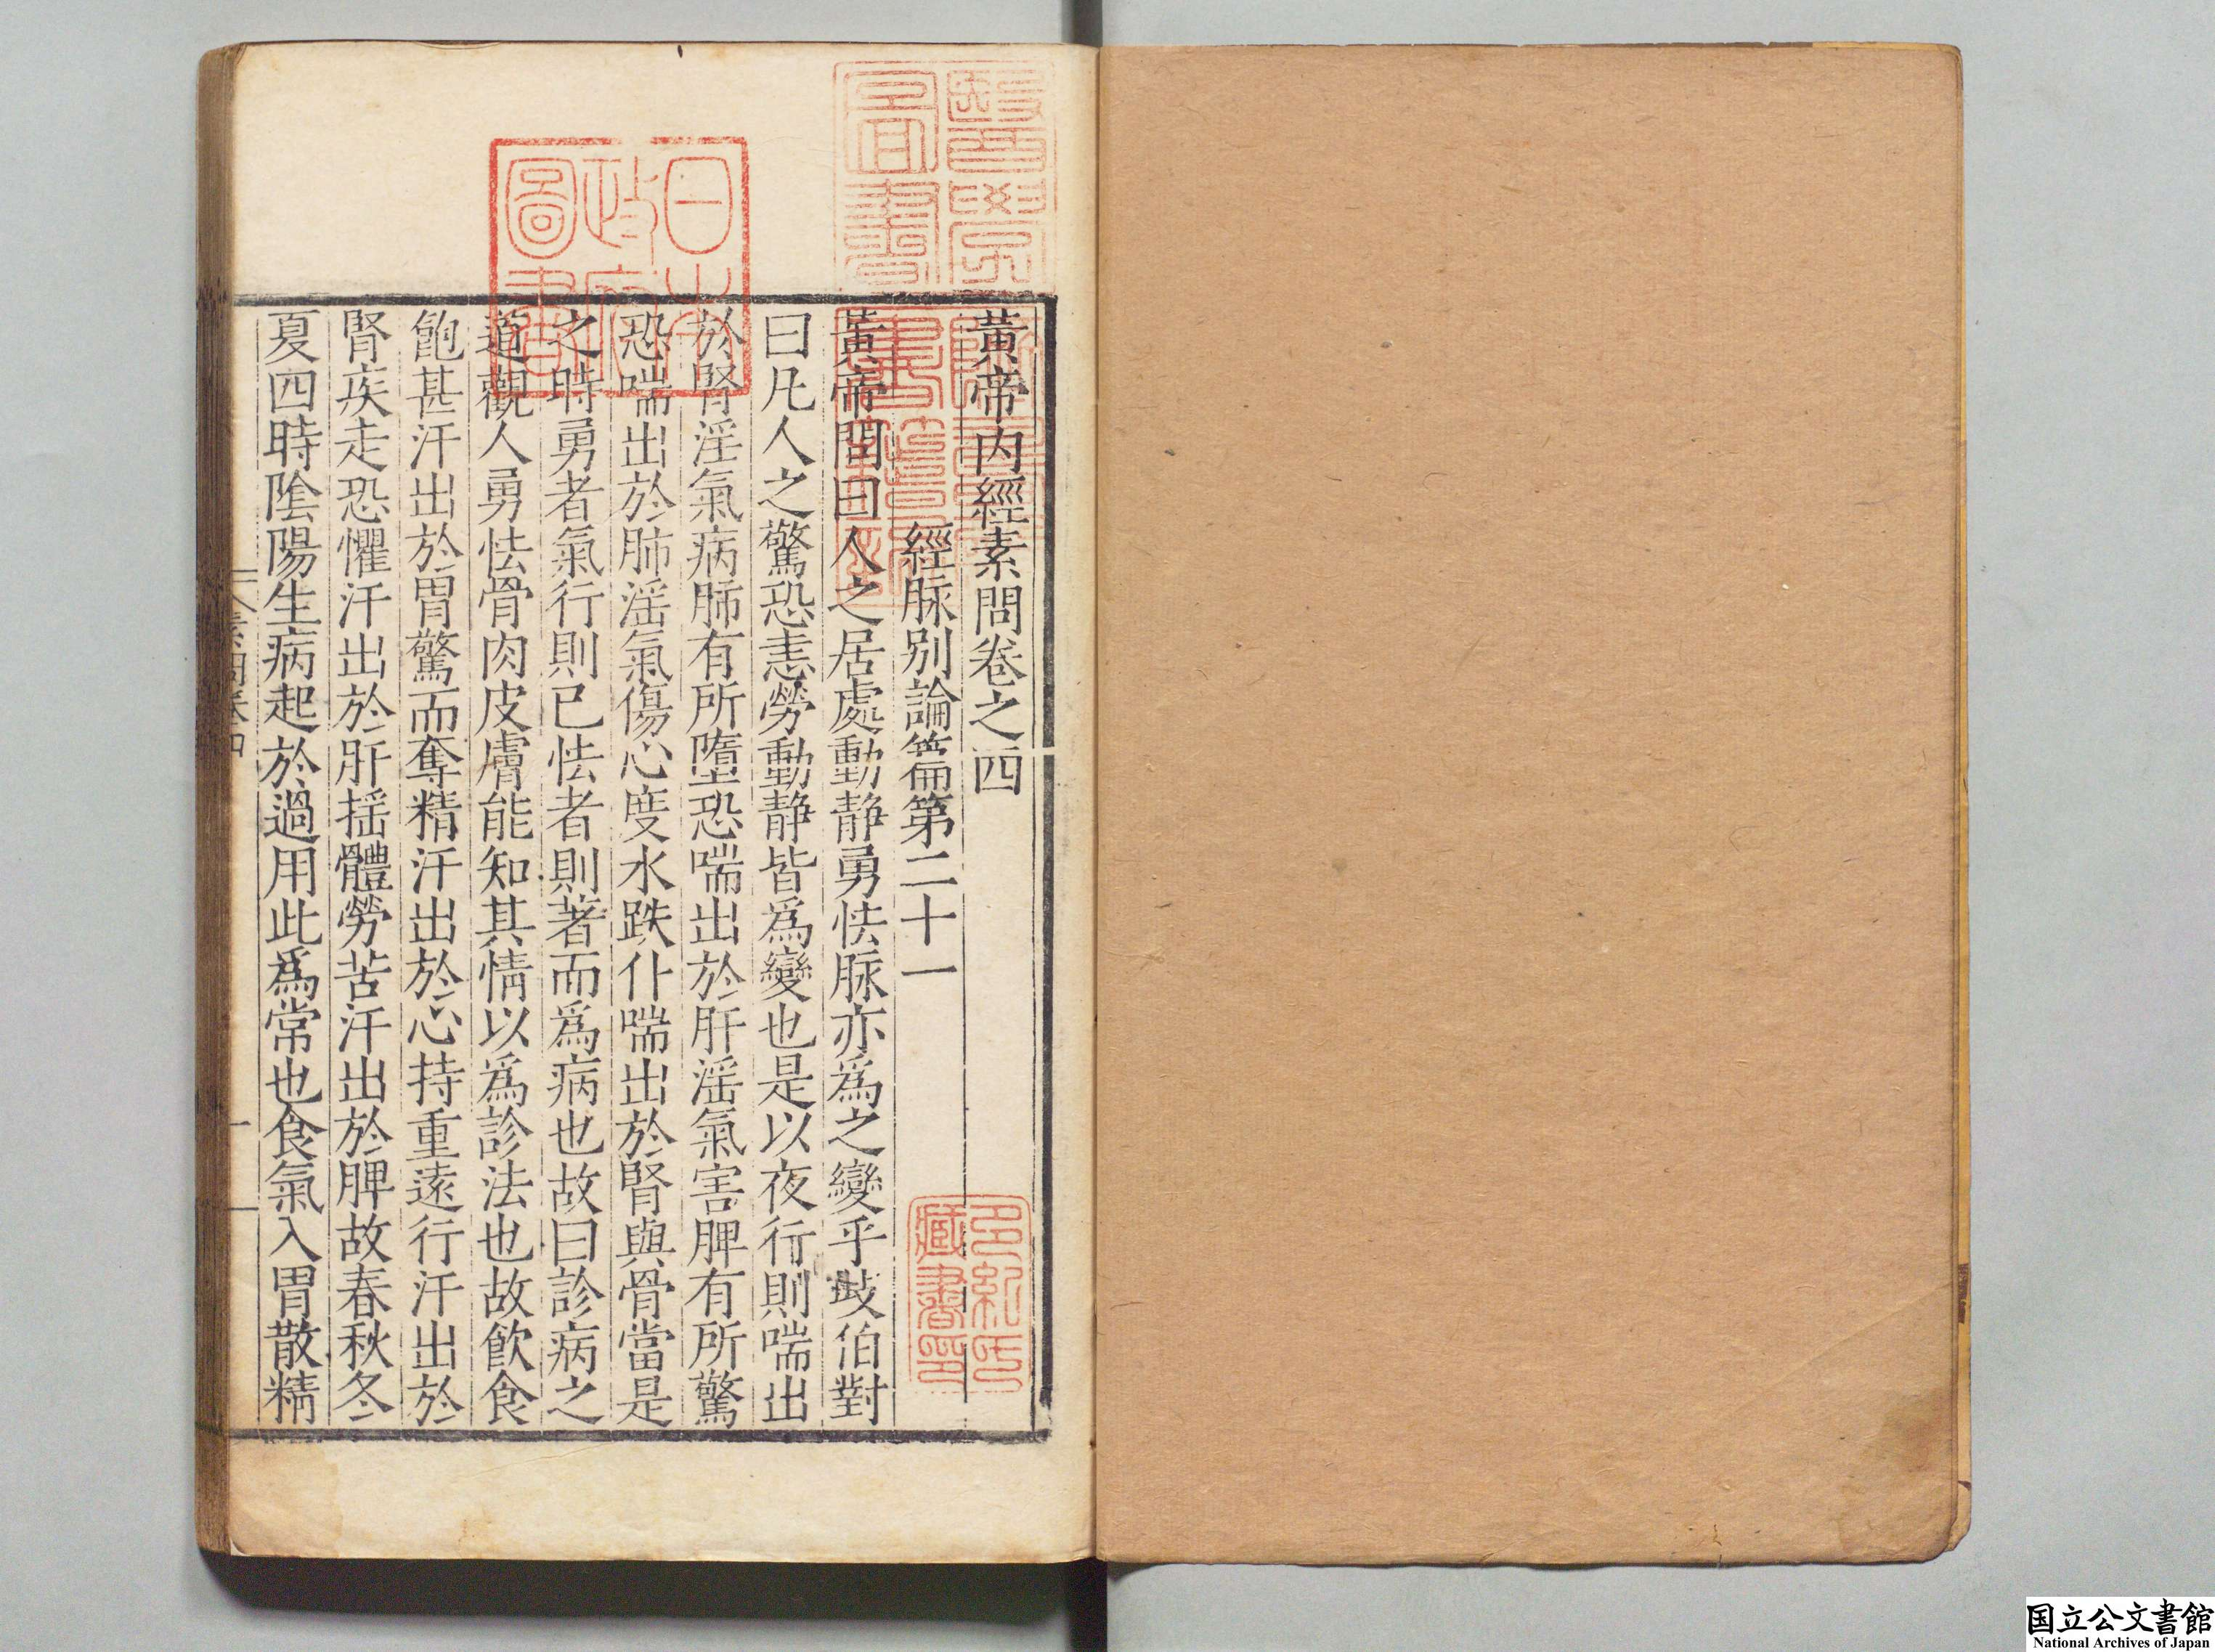 黃帝內經素問卷之四
經脉别論篇第二十一
黃帝問曰人之居處動靜勇怯脉亦爲之變乎歧伯對
曰凡人之驚恐恚勞動静皆爲變也是以夜行則喘出
於腎淫氣病肺有所墮恐喘出於肝淫氣害脾有所驚
恐喘出於肺淫氣傷心度水跌仆喘出於腎與骨當是
之時勇者氣行則已怯者則著而爲病也故曰診病之
道觀人勇怯骨肉皮膚能知其情以爲診法也故飲食
飽甚汗出於胃驚而奪精汗出於心持重遠行汗出於
腎疾走恐懼汗出於肝揺體勞苦汗出於脾故春秋冬
夏四時陰陽生病起於過用此爲常也食氣入胃散精
素問卷四
一
醫學圖書
日本政府圖書
多紀氏藏書印
国立公文書館
National Archives of Japan